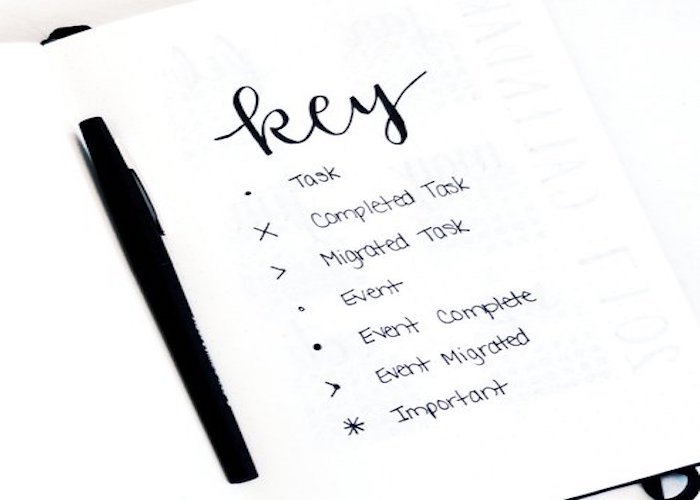 key
• Task
× Completed Task
> Migrated Task
◦ Event
• Event Complete
> Event Migrated
* Important